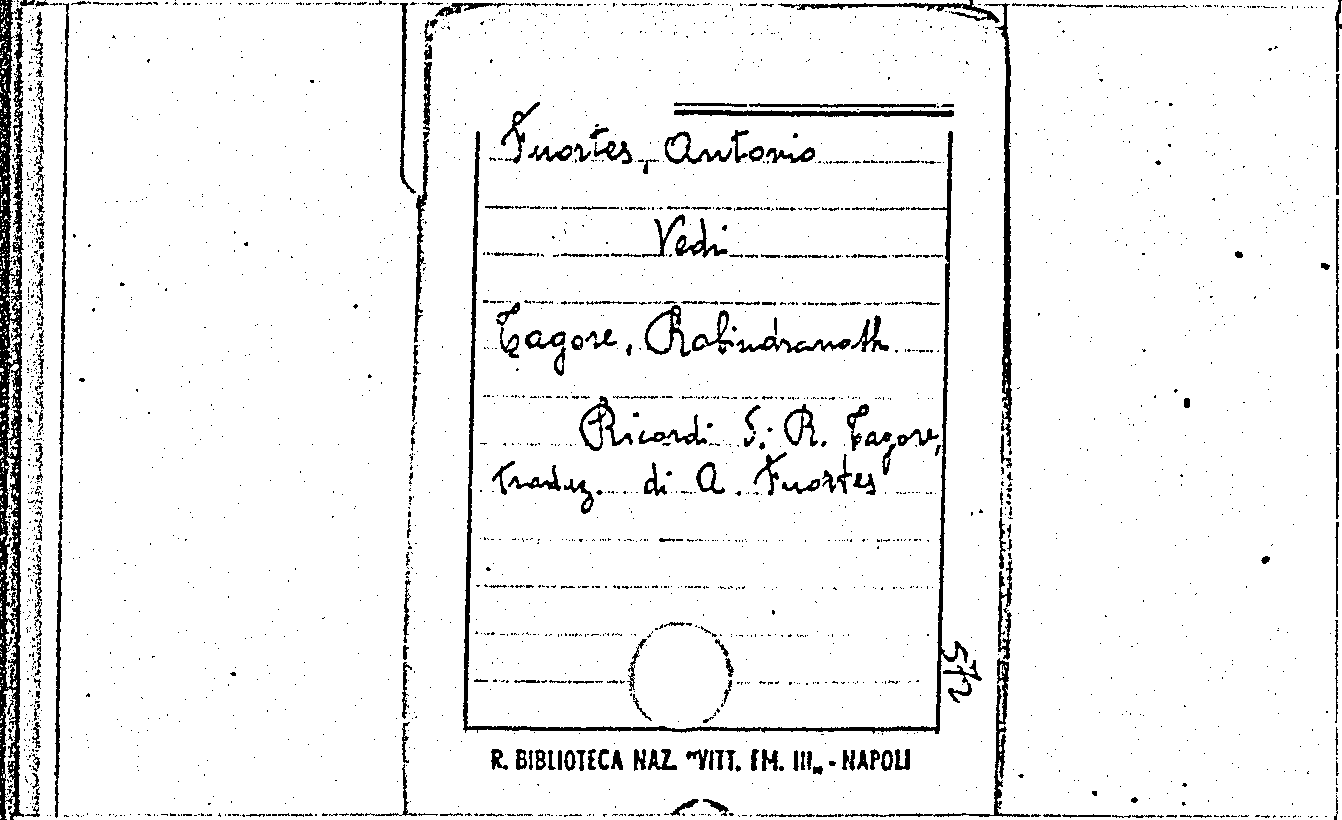 Fuortes, Antonio
Vedi
Tagore, Rabindranath
Ricordi di R. Tagore,
traduz. di A. Fuortes
572
R. BIBLIOTECA NAZ. "VITT. EM. III„ - NAPOLI